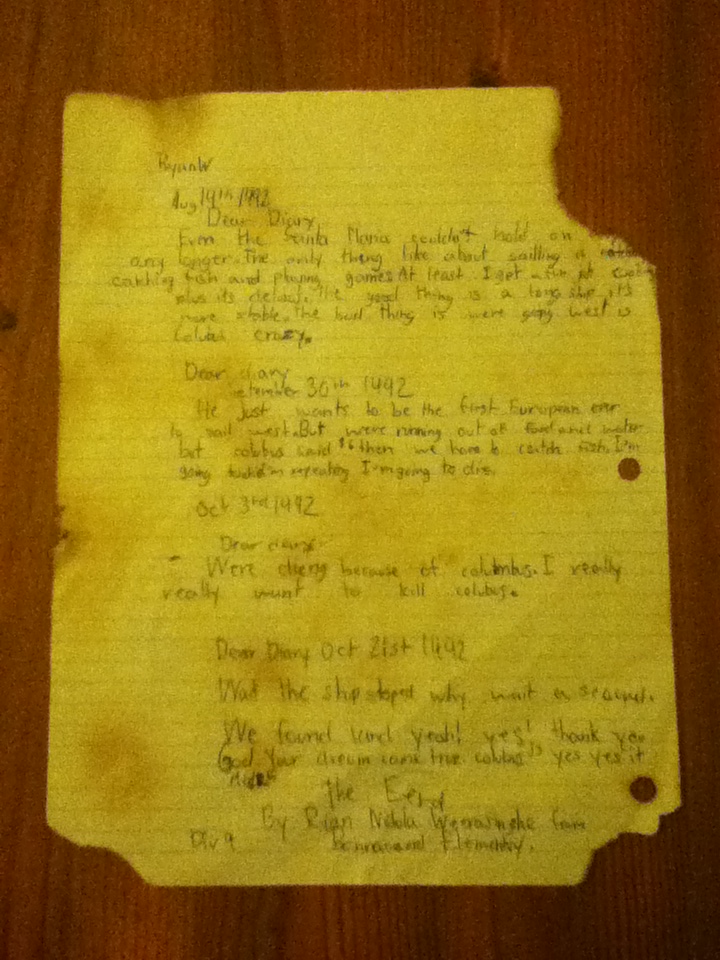 Ryan W
Aug 19th 1492
Dear Diary
Even the Santa Maria couldn't hold on
any longer. The only thing like about sailling is
catching fish and playing games. At least I get a
plus its The good thing is a long ship its
more stable. The bad thing is were going west is
crazy.
Dear diary
30th 1492
He just wants to be the first European ever
to sail west. But were running out of food and water
but colubus said then we have to catch fish. I'm
going repeating I'm going to die.
Oct 3rd 1492
Dear diary
Were dieng because of columbus. I really
really want to kill colubus.
Dear Diary Oct 21st 1492
Wait the ship stoped why wait a second.
We found land yeah! yes! thank you
God. Your dream came true colubus yes yes it
The End
By Rian from
Div 9 Elementry.